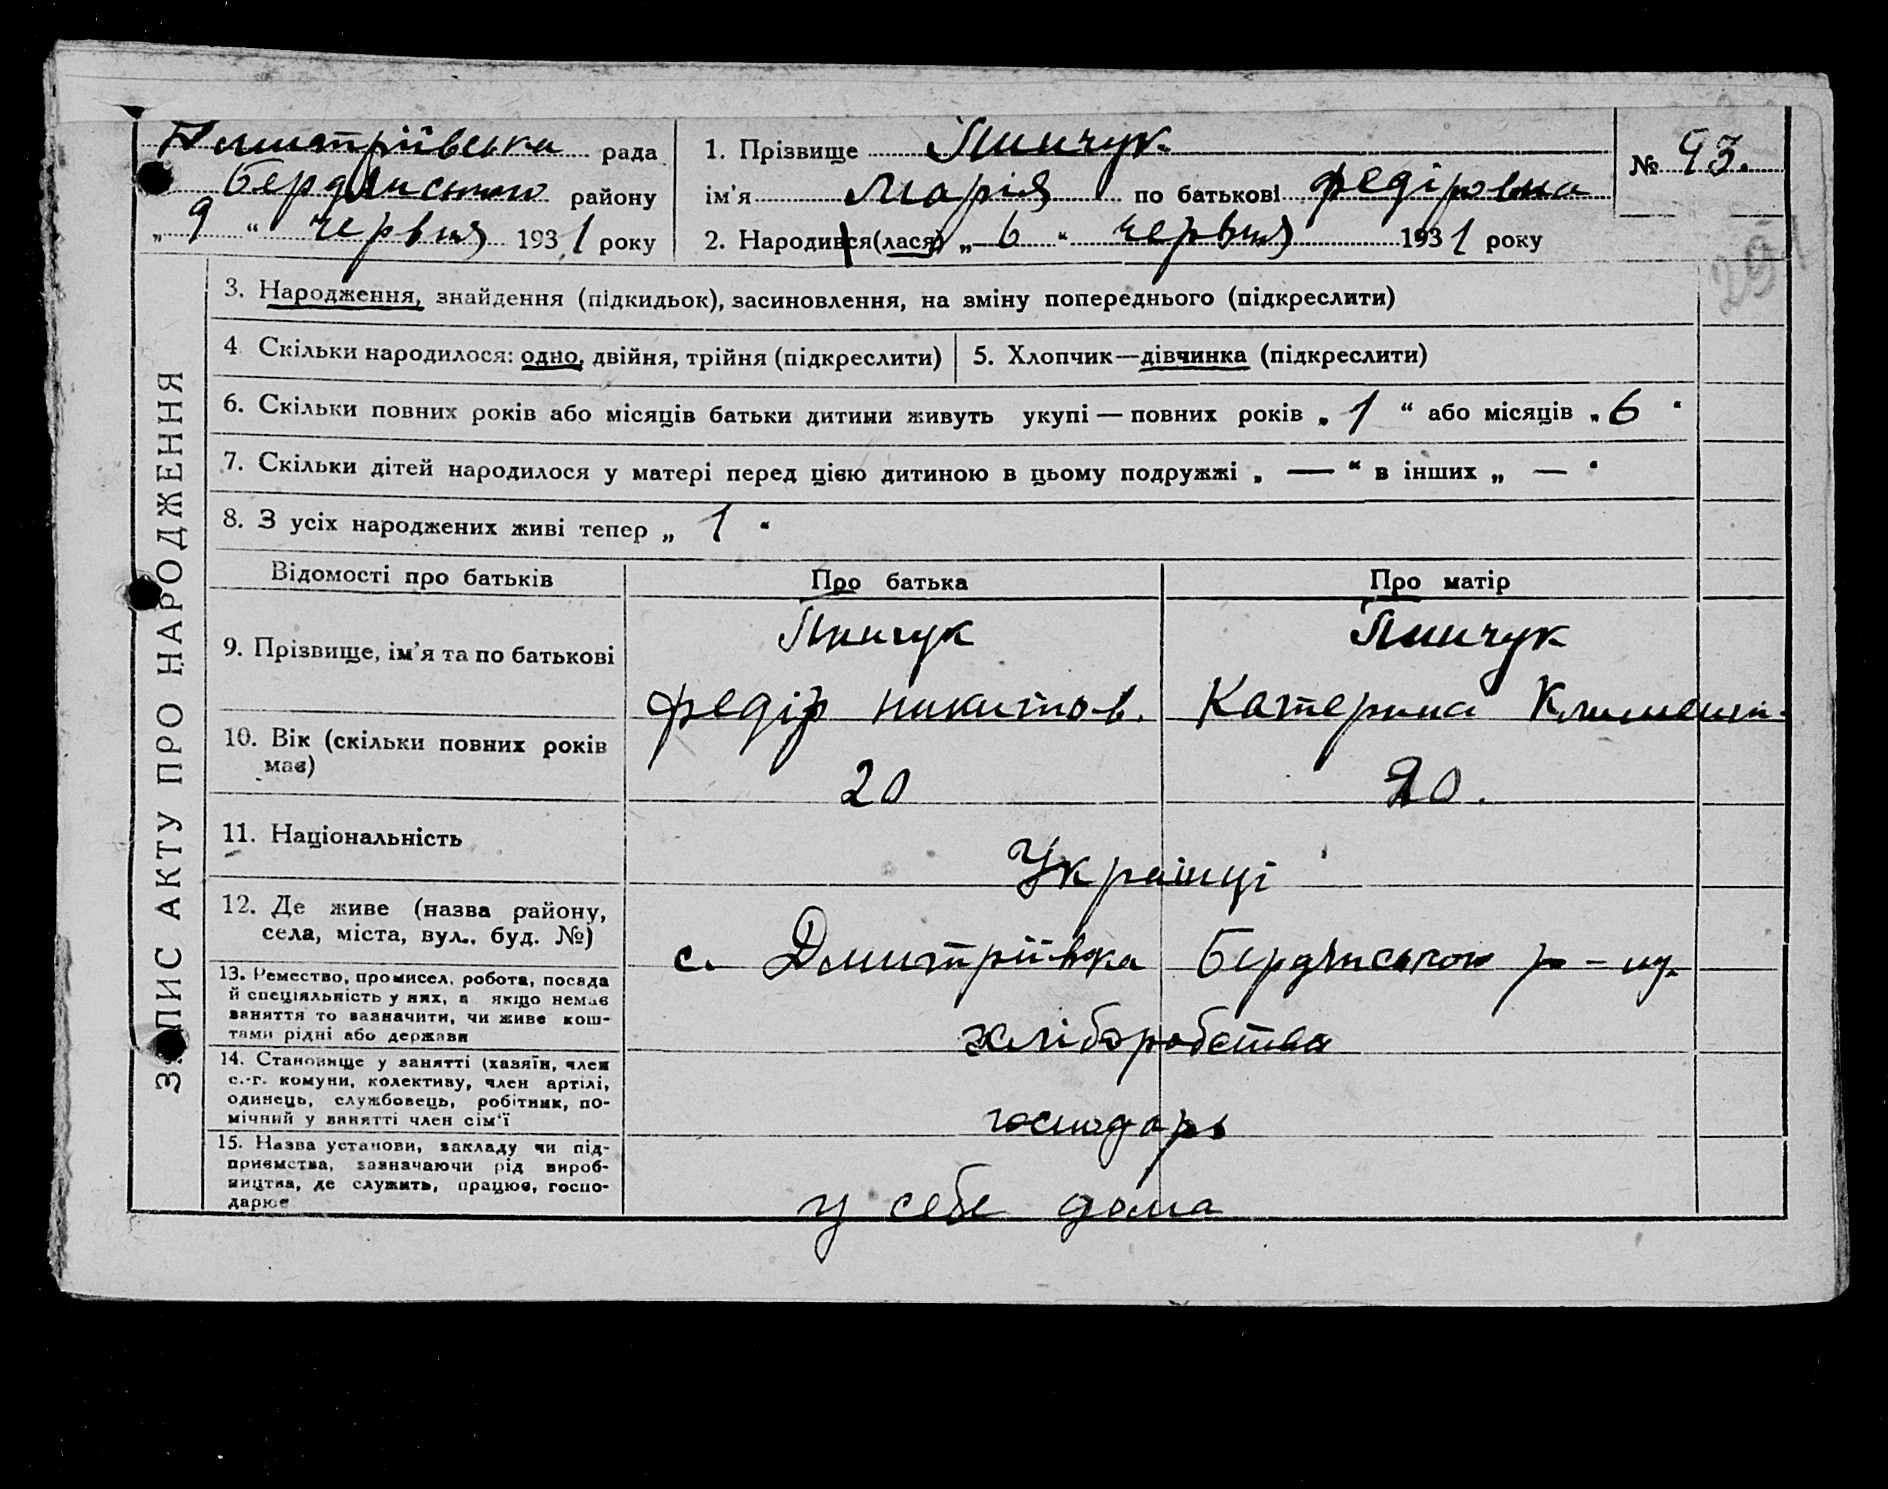 Дмитріївська рада
Бердянського району
„ 9 “ червня 1931 року
1. Прізвище Пинчук
ім'я Марія по батькові Федіровна
2. Народився (лася) „ 6 “ червня 1931 року
№ 93.
291
ЗАПИС АКТУ ПРО НАРОДЖЕННЯ
3. Народження, знайдення (підкидьок), засиновлення, на зміну попереднього (підкреслити)
4. Скільки народилося: одно, двійня, трійня (підкреслити)
5. Хлопчик—дівчинка (підкреслити)
6. Скільки повних років або місяців батьки дитини живуть укупі — повних років „ 1 “ або місяців „ 6 “
7. Скільки дітей народилося у матері перед цією дитиною в цьому подружжі „ — “ в інших „ — “
8. З усіх народжених живі тепер „ 1 “
Відомості про батьків Про батька Про матір
9. Прізвище, ім'я та по батькові
Пинчук
Федір Никитов.
Пинчук
Катерина Климент.
10. Вік (скільки повних років
має)
20
20.
11. Національність
Українці
12. Де живе (назва району,
села, міста, вул., буд. №)
с. Дмитріївка Бердянського р-ну.
13. Ремество, промисел, робота, посада
й спеціяльність у них, а якщо немає
заняття то зазначити, чи живе кош-
тами рідні або держави
хліборобства
14. Становище у занятті (хазяїн, член
с.-г. комуни, колективу, член артілі,
одинець, службовець, робітник, по-
мічний у занятті член сім'ї
господарь
15. Назва установи, закладу чи під-
приємства, зазначаючи рід вироб-
ництва, де служить, працює, госпо-
дарює
у себе дома